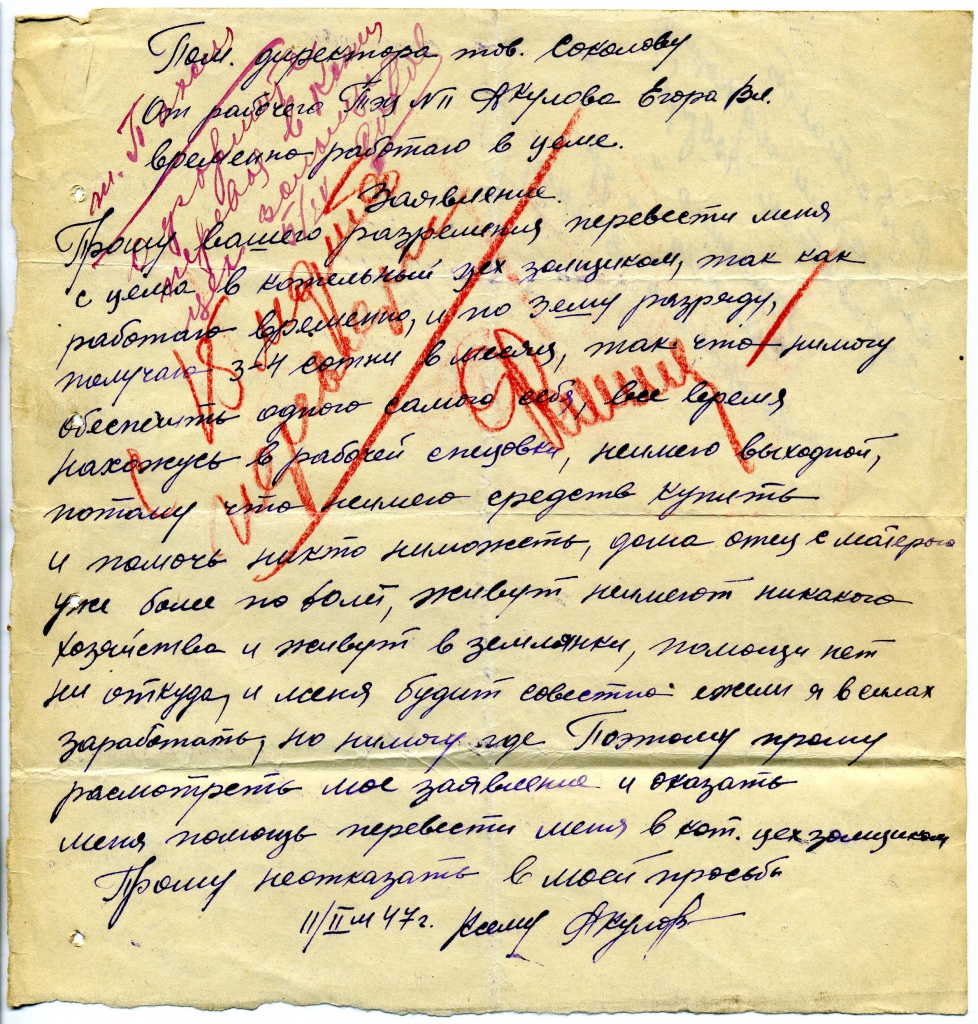 Пом. директора тов. Соколову
От рабочего Тэц №11 Акулова Егора Вл.
временно работаю в цеме.
Заявление.
Прошу вашего разрешения перевести меня
с цема в котельный цех золщиком, так как
работаю временно, и по 3ему разряду,
получаю 3-4 сотни в месяц, так что нимогу
обеспечить одного самого себя, все время
нахожусь в рабочей спецовки, неимею выходной,
потому что неимею средств купить
и помочь никто ниможеть, дома отец с матерью
уже более по болт, живут неимеют никакого
хозяйства и живут в землянки, помощи нет
ни откуда, и меня будит совестно ежели я в силах
заработать, но нимогу где Поэтому прошу
расмотреть мое заявление и оказать
меня помощь перевести меня в кот. цех золщиком
Прошу неотказать в моей просьбы
11/II м 47 г. Акулов
т.
оформить
перевод в
цех